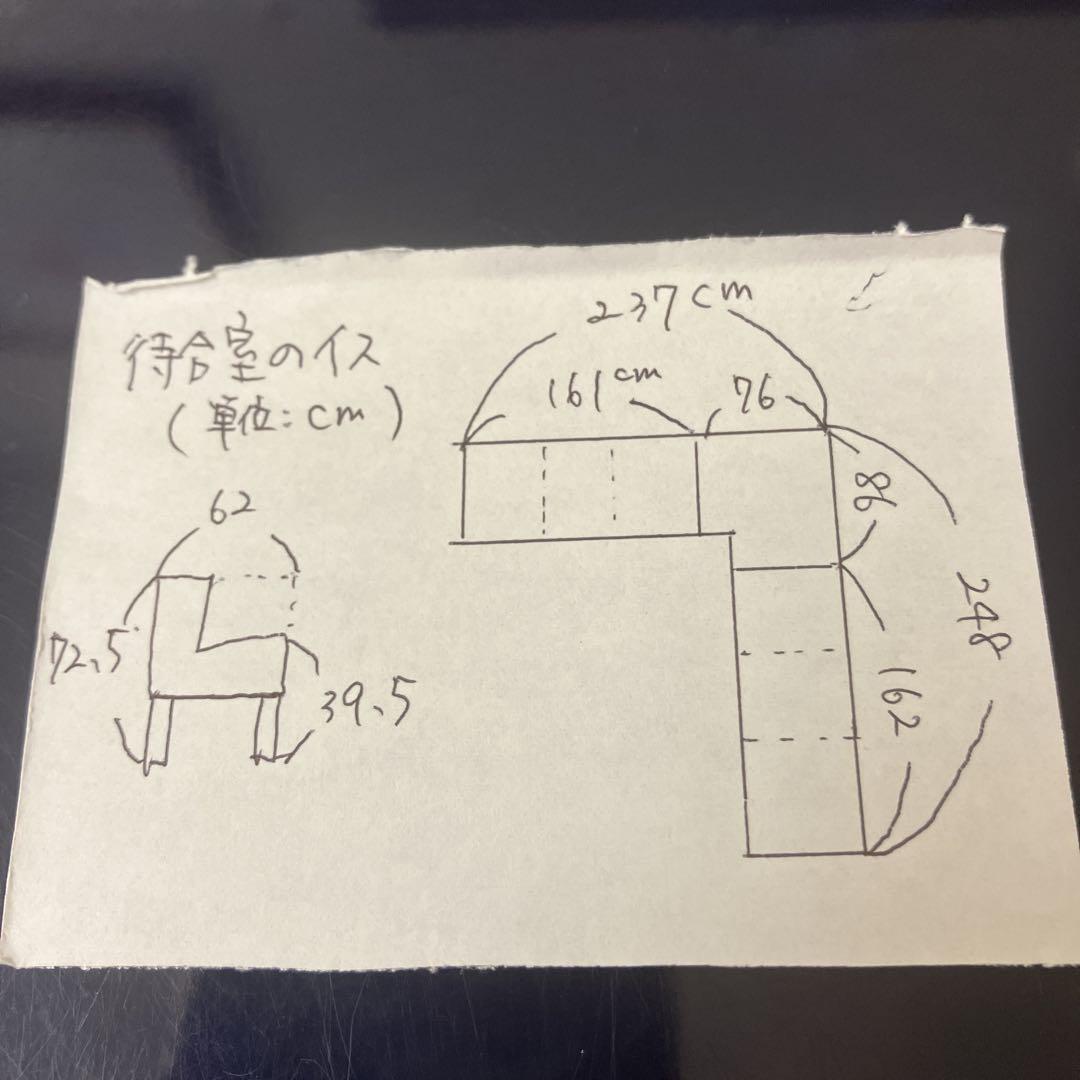 待合室のイス
(単位:cm)
237cm
161cm
76
86
248
162
62
72.5
39.5